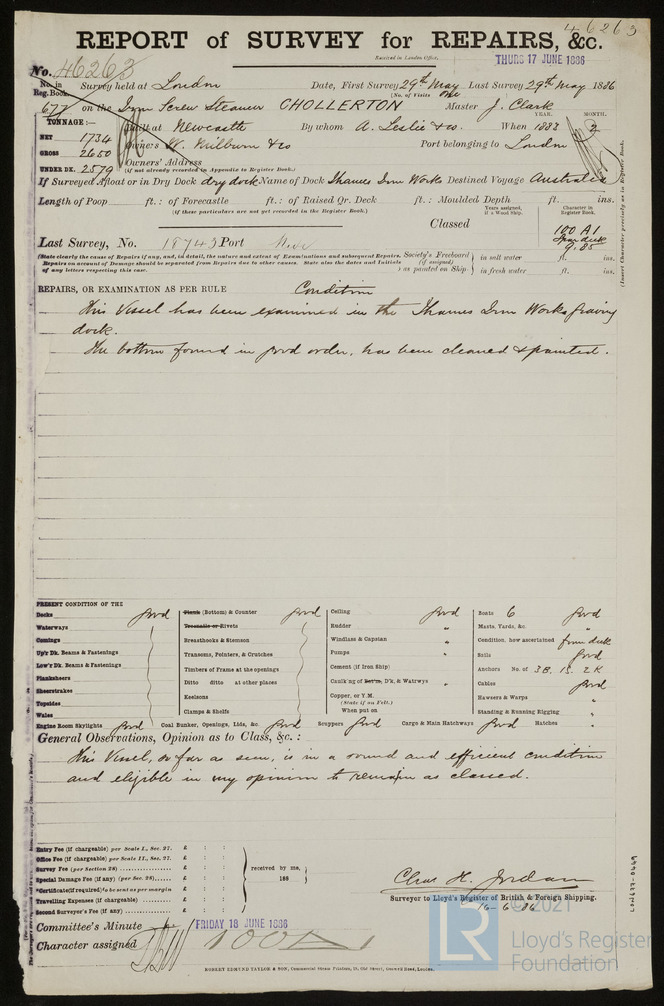 46263
REPORT of SURVEY for REPAIRS, &c.
Received in London Office, THURS 17 JUNE 1886
No. 46263
No. in Reg. Book. Survey held at London Date, First Survey 29th May Last Survey 29th May 1886
(No. of Visits one
677 on the Iron Screw Steamer CHOLLERTON Master J. Clark
TONNAGE:— YEAR. MONTH.
Built at Newcastle By whom A. Leslie & co. When 1883 2
NET 1734
GROSS 2650 Owners W. Milburn & co Port belonging to London
Owners' Address
UNDER DK. 2579 (if not already recorded in Appendix to Register Book.)
If Surveyed Afloat or in Dry Dock dry dock Name of Dock Thames Iron Works Destined Voyage Australia
Length of Poop ft.: of Forecastle ft.: of Raised Qr. Deck ft.: Moulded Depth ft. ins.
(if these particulars are not yet recorded in the Register Book.)
Years assigned, if a Wood Ship. Character in Register Book.
Classed 100 A1
Last Survey, No. 18743 Port
(State clearly the cause of Repairs if any, and, in detail, the nature and extent of Examinations and subsequent Repairs.
Repairs on account of Damage should be separated from Repairs due to other causes. State also the dates and Initials
of any letters respecting this case.
Society's Freeboard (if assigned) as painted on Ship
in salt water ft. ins.
in fresh water ft. ins.
(Insert Character precisely as in Register Book.
REPAIRS, OR EXAMINATION AS PER RULE Condition
This Vessel has been examined in the Thames Iron Works Graving
dock.
The bottom found in good order, has been cleaned & painted.
PRESENT CONDITION OF THE
Decks good
Waterways
Comings
Up'r Dk. Beams & Fastenings
Low'r Dk. Beams & Fastenings
Planksheers
Sheerstrakes
Topsides
Wales
Plank (Bottom) & Counter good
Treenails or Rivets
Breasthooks & Stemson
Transoms, Pointers, & Crutches
Timbers of Frame at the openings
Ditto ditto at other places
Keelsons
Clamps & Shelfs
Ceiling good
Rudder "
Windlass & Capstan "
Pumps "
Cement (if Iron Ship) "
Caulking of Bot'm, D'k, & Watrwys "
Copper, or Y.M.
(State if on Felt.)
When put on
Boats 6 good
Masts, Yards, &c. "
Condition, how ascertained from deck
Sails good
Anchors No. of 3B. 1S. 2K
Cables good
Hawsers & Warps "
Standing & Running Rigging "
Engine Room Skylights good Coal Bunker, Openings, Lids, &c. good Scuppers good Cargo & Main Hatchways good Hatches "
General Observations, Opinion as to Class, &c.:
This Vessel, so far as seen, is in a sound and efficient condition
and eligible in my opinion to remain as classed.
Entry Fee (if chargeable) per Scale I., Sec. 27. £ : :
Office Fee (if chargeable) per Scale II., Sec. 27. £ : :
Survey Fee (per Section 28) £ : :
Special Damage Fee (if any) (per Sec. 28) £ : :
*Certificate (if required) to be sent as per margin £ : :
Travelling Expenses (if chargeable) £ : :
Second Surveyor's Fee (if any) £ : :
received by me,
188
Chas H. Jordan
Surveyor to Lloyd's Register of British & Foreign Shipping.
16-6-86
Committee's Minute FRIDAY 18 JUNE 1886
Character assigned 100 A 1
ROBERT EDMUND TAYLOR & SON, Commercial Steam Printers, 19, Old Street, Goswell Road, London.
LON677-0449
© 2021
LR
Lloyd's Register
Foundation